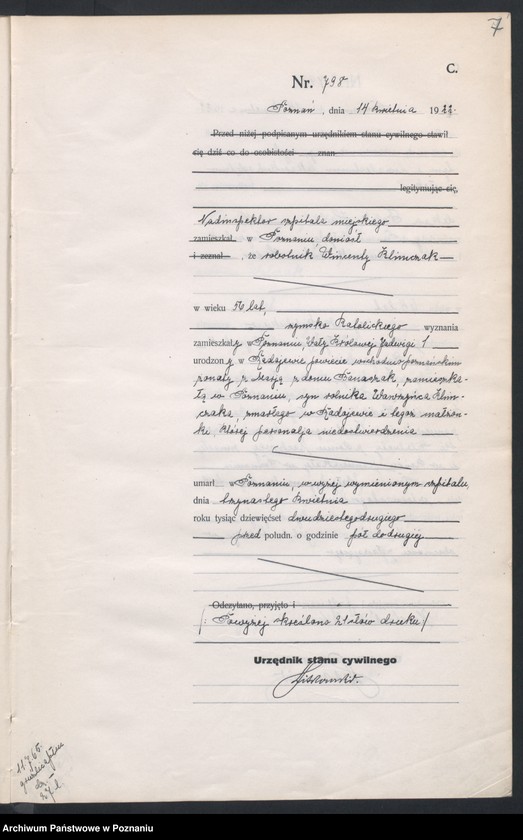 7
C.
Nr. 798
Poznań, dnia 14 kwietnia 1922.
Przed niżej podpisanym urzędnikiem stanu cywilnego stawił
się dziś co do osobistości znan
legitymując się,
Nadinspektor szpitala miejskiego
zamieszkał w Poznaniu, doniósł
i zeznał, że robotnik Wincenty Klimczak
w wieku 56 lat,
rzymsko katolickiego wyznania
zamieszkały w Poznaniu, Wały Królowej Jadwigi 1
urodzony w Radojewie powiecie wschodnio poznańskim
żonaty z Marją z domu Banaszak, zamieszka-
łą w Poznaniu, syn rolnika Wawrzyńca Klim-
czaka, zmarłego w Radojewie i tegoż małżon-
ki, której personalja niedostwierdzenia
umarł w Poznaniu, w wyżej wymienionym szpitalu,
dnia trzynastego kwietnia
roku tysiąc dziewięćset dwudziestegodrugiego
przed połudn. o godzinie pół do drugiej
Odczytano, przyjęto i
/: Powyżej skreślono 21 słów druku /
Urzędnik stanu cywilnego
Archiwum Państwowe w Poznaniu